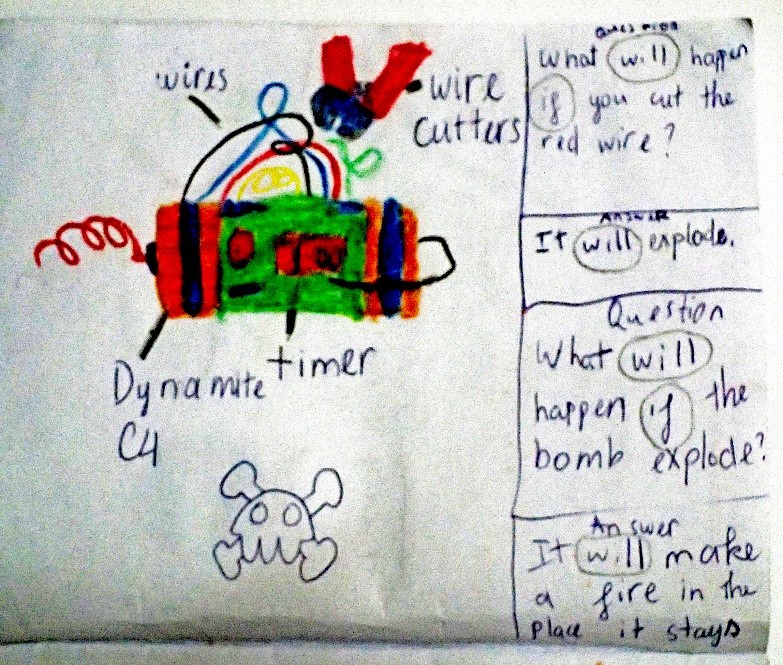 wires
wire
cutters
Dynamite
C4
timer
Question
What will happen
if you cut the
red wire?
Answer
It will explode.
Question
What will
happen if the
bomb explode?
Answer
It will make
a fire in the
place it stays